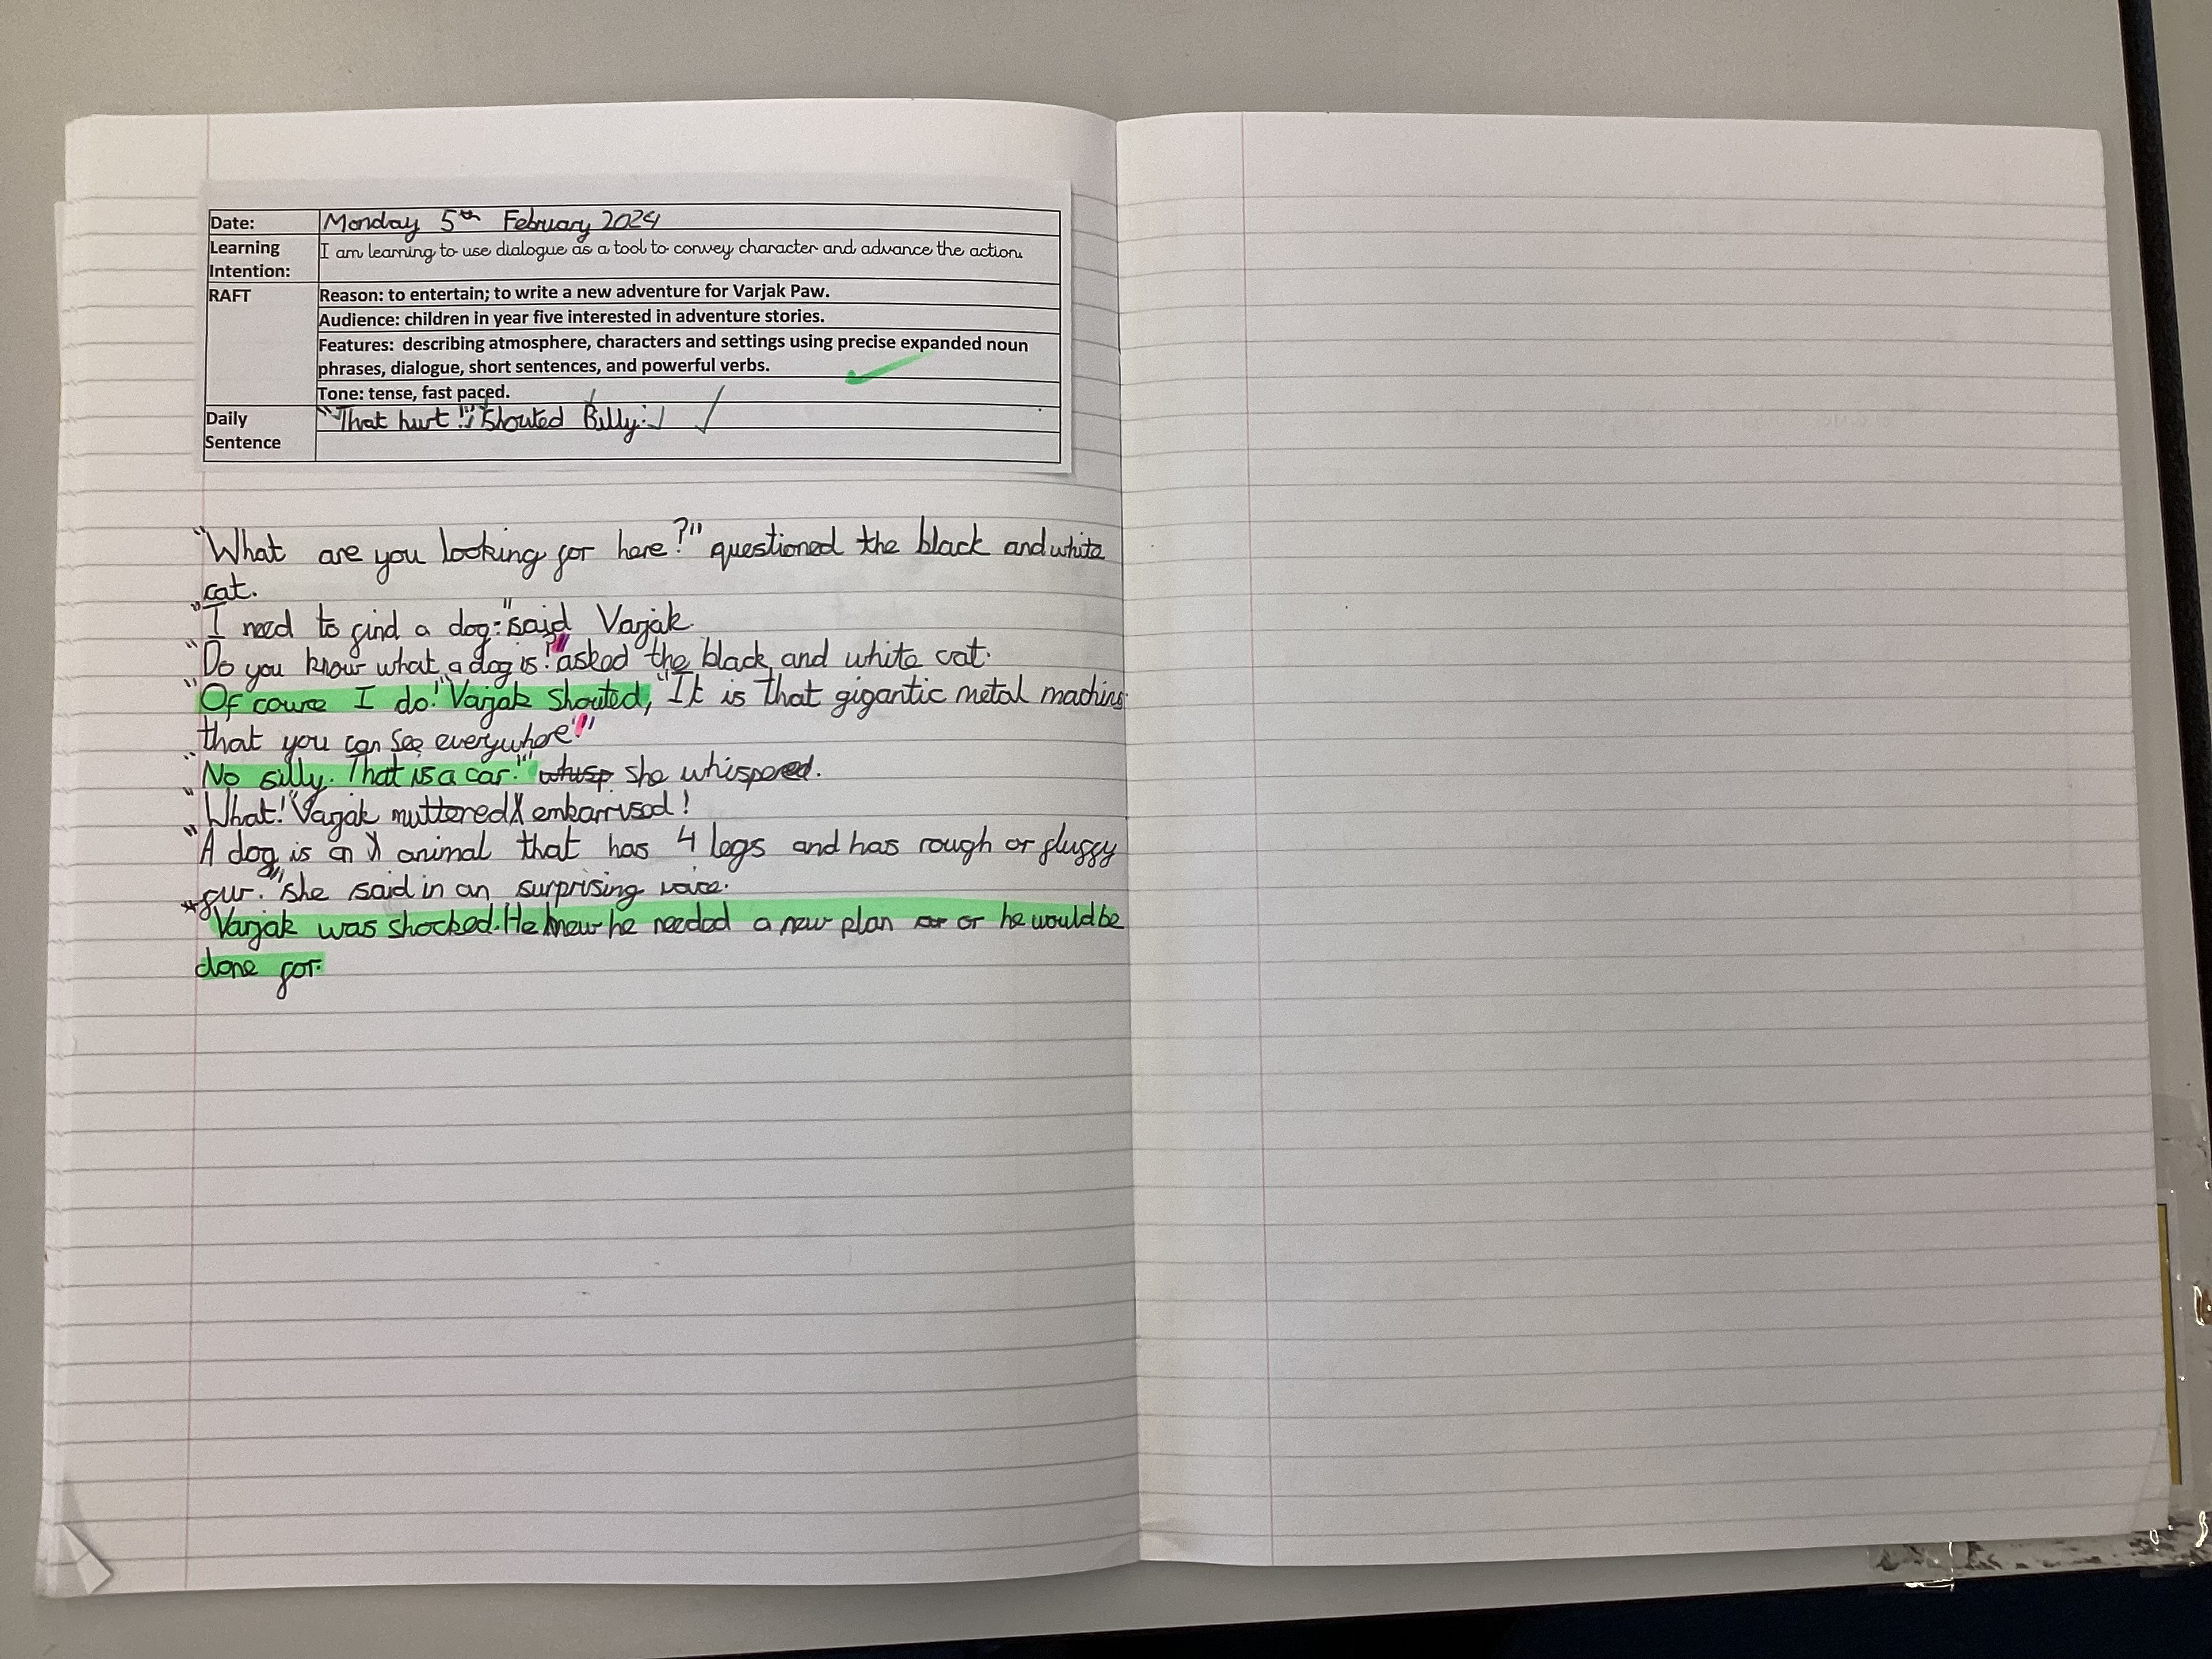 Date: Monday 5th February 2024
Learning Intention: I am learning to use dialogue as a tool to convey character and advance the action.
RAFT
Reason: to entertain; to write a new adventure for Varjak Paw.
Audience: children in year five interested in adventure stories.
Features: describing atmosphere, characters and settings using precise expanded noun
phrases, dialogue, short sentences, and powerful verbs.
Tone: tense, fast paced.
Daily Sentence
"That hurt!" shouted Billy.
"What are you looking for here?" questioned the black and white
cat.
"I need to find a dog." said Varjak.
"Do you know what a dog is?" asked the black and white cat.
"Of courre I do!" Varjak shouted, "It is that gigantic metal machine
that you can see everywhere!"
"No silly. That is a car." whisp she whispered.
"What!" Varjak muttered embarrused!
"A dog is an animal that has 4 legs and has rough or fluffy
fur." she said in an surprising voice.
Varjak was shocked. He knew he needed a new plan or or he would be
done for.